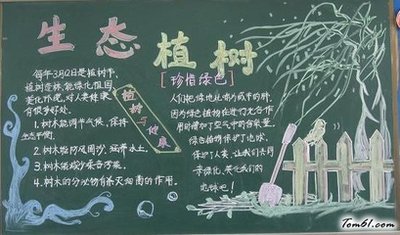 生态
植树
[珍惜绿色]
每年3月12日是植树节,
植树造林,能绿化祖国
美化环境,对人类健康
有很多好处.
1.树木能调节气候,保持
生态平衡.
2.树木能防风固沙,涵养水土.
3.树木能减少各污染.
4.树木的分泌物有杀灭细菌的作用.
植树与健康
人们把绿地比喻为城市的肺,
因为绿色植物在进行光合作
用时增加了空气中的含氧量.
绿色植物保护了地球,
保护了人类,让我们共同
来绿化,美化我们的
地球吧!
Tom61.com